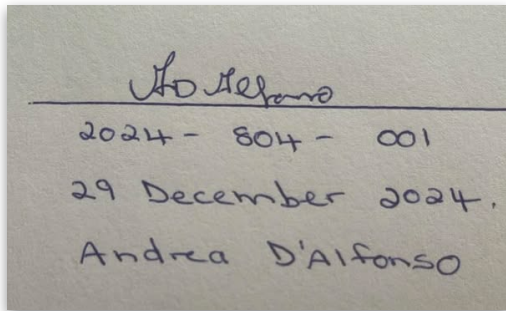 2024 - 804 - 001
29 December 2024.
Andrea D'Alfonso